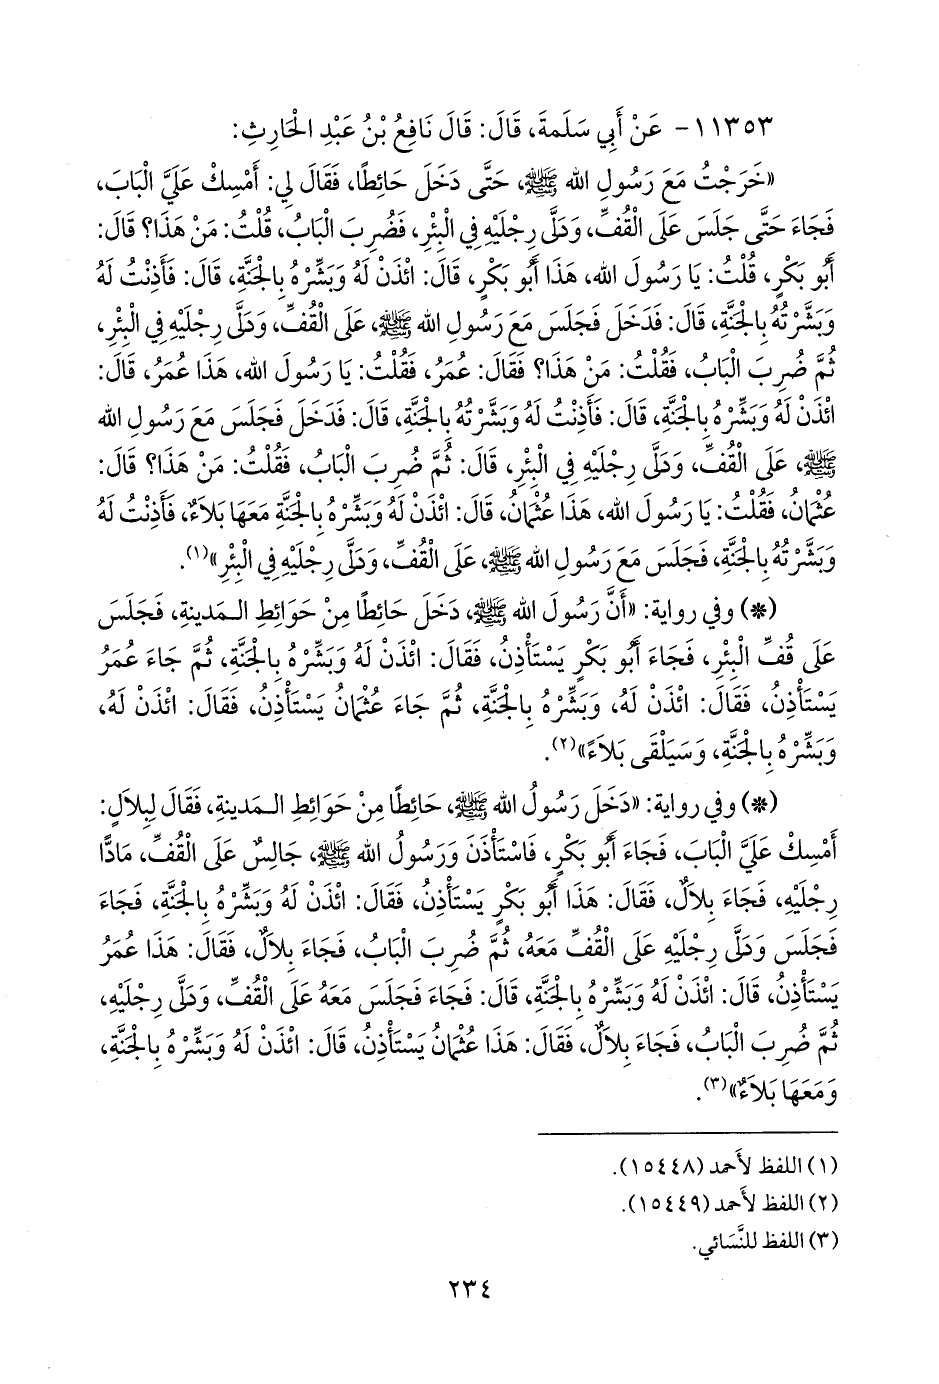 ١١٣٥٣- عَنْ أَبِي سَلَمةَ، قَالَ: قَالَ نَافِعُ بْنُ عَبْدِ الْحَارِثِ:
«خَرَجْتُ مَعَ رَسُولِ الله ﷺ، حَتَّى دَخَلَ حَائِطًا، فَقَالَ لِي: أَمْسِكْ عَلَيَّ الْبَابَ،
فَجَاءَ حَتَّى جَلَسَ عَلَى الْقُفِّ، وَدَلَّى رِجْلَيْهِ فِي الْبِئْرِ، فَضُرِبَ الْبَابُ، قُلْتُ: مَنْ هَذَا؟ قَالَ:
أَبُو بَكْرٍ، قُلْتُ: يَا رَسُولَ الله، هَذَا أَبُو بَكْرٍ، قَالَ: ائْذَنْ لَهُ وَبَشِّرْهُ بِالْجَنَّةِ، قَالَ: فَأَذِنْتُ لَهُ
وَبَشَّرْتُهُ بِالْجَنَّةِ، قَالَ: فَدَخَلَ فَجَلَسَ مَعَ رَسُولِ الله ﷺ، عَلَى الْقُفِّ، وَدَلَّى رِجْلَيْهِ فِي الْبِئْرِ،
ثُمَّ ضُرِبَ الْبَابُ، فَقُلْتُ: مَنْ هَذَا؟ فَقَالَ: عُمَرُ، فَقُلْتُ: يَا رَسُولَ الله، هَذَا عُمَرُ، قَالَ:
ائْذَنْ لَهُ وَبَشِّرْهُ بِالْجَنَّةِ، قَالَ: فَأَذِنْتُ لَهُ وَبَشَّرْتُهُ بِالْجَنَّةِ، قَالَ: فَدَخَلَ فَجَلَسَ مَعَ رَسُولِ الله
ﷺ، عَلَى الْقُفِّ، وَدَلَّى رِجْلَيْهِ فِي الْبِئْرِ، قَالَ: ثُمَّ ضُرِبَ الْبَابُ، فَقُلْتُ: مَنْ هَذَا؟ قَالَ:
عُثْمَانُ، فَقُلْتُ: يَا رَسُولَ الله، هَذَا عُثْمَانُ، قَالَ: ائْذَنْ لَهُ وَبَشِّرْهُ بِالْجَنَّةِ مَعَهَا بَلاَءٌ، فَأَذِنْتُ لَهُ
وَبَشَّرْتُهُ بِالْجَنَّةِ، فَجَلَسَ مَعَ رَسُولِ الله ﷺ، عَلَى الْقُفِّ، وَدَلَّى رِجْلَيْهِ فِي الْبِئْرِ»(١).
(*) وفي رواية: «أَنَّ رَسُولَ الله ﷺ، دَخَلَ حَائِطًا مِنْ حَوَائِطِ الـمَدينةِ، فَجَلَسَ
عَلَى قُفِّ الْبِئْرِ، فَجَاءَ أَبُو بَكْرٍ يَسْتَأْذِنُ، فَقَالَ: ائْذَنْ لَهُ وَبَشِّرْهُ بِالْجَنَّةِ، ثُمَّ جَاءَ عُمَرُ
يَسْتَأْذِنُ، فَقَالَ: ائْذَنْ لَهُ، وَبَشِّرْهُ بِالْجَنَّةِ، ثُمَّ جَاءَ عُثْمَانُ يَسْتَأْذِنُ، فَقَالَ: ائْذَنْ لَهُ،
وَبَشِّرْهُ بِالْجَنَّةِ، وَسَيَلْقَى بَلاَءً»(٢).
(*) وفي رواية: «دَخَلَ رَسُولُ الله ﷺ، حَائِطًا مِنْ حَوَائِطِ الـمَدينةِ، فَقَالَ لِبِلاَلٍ:
أَمْسِكْ عَلَيَّ الْبَابَ، فَجَاءَ أَبُو بَكْرٍ، فَاسْتَأْذَنَ وَرَسُولُ الله ﷺ، جَالِسٌ عَلَى الْقُفِّ، مَادًّا
رِجْلَيْهِ، فَجَاءَ بِلاَلٌ، فَقَالَ: هَذَا أَبُو بَكْرٍ يَسْتَأْذِنُ، فَقَالَ: ائْذَنْ لَهُ وَبَشِّرْهُ بِالْجَنَّةِ، فَجَاءَ
فَجَلَسَ وَدَلَّى رِجْلَيْهِ عَلَى الْقُفِّ مَعَهُ، ثُمَّ ضُرِبَ الْبَابُ، فَجَاءَ بِلاَلٌ، فَقَالَ: هَذَا عُمَرُ
يَسْتَأْذِنُ، قَالَ: ائْذَنْ لَهُ وَبَشِّرْهُ بِالْجَنَّةِ، قَالَ: فَجَاءَ فَجَلَسَ مَعَهُ عَلَى الْقُفِّ، وَدَلَّى رِجْلَيْهِ،
ثُمَّ ضُرِبَ الْبَابُ، فَجَاءَ بِلاَلٌ، فَقَالَ: هَذَا عُثْمَانُ يَسْتَأْذِنُ، قَالَ: ائْذَنْ لَهُ وَبَشِّرْهُ بِالْجَنَّةِ،
وَمَعَهَا بَلاَءٌ»(٣).
(١) اللفظ لأَحمد (١٥٤٤٨).
(٢) اللفظ لأَحمد (١٥٤٤٩).
(٣) اللفظ للنَّسَائي.
٢٣٤